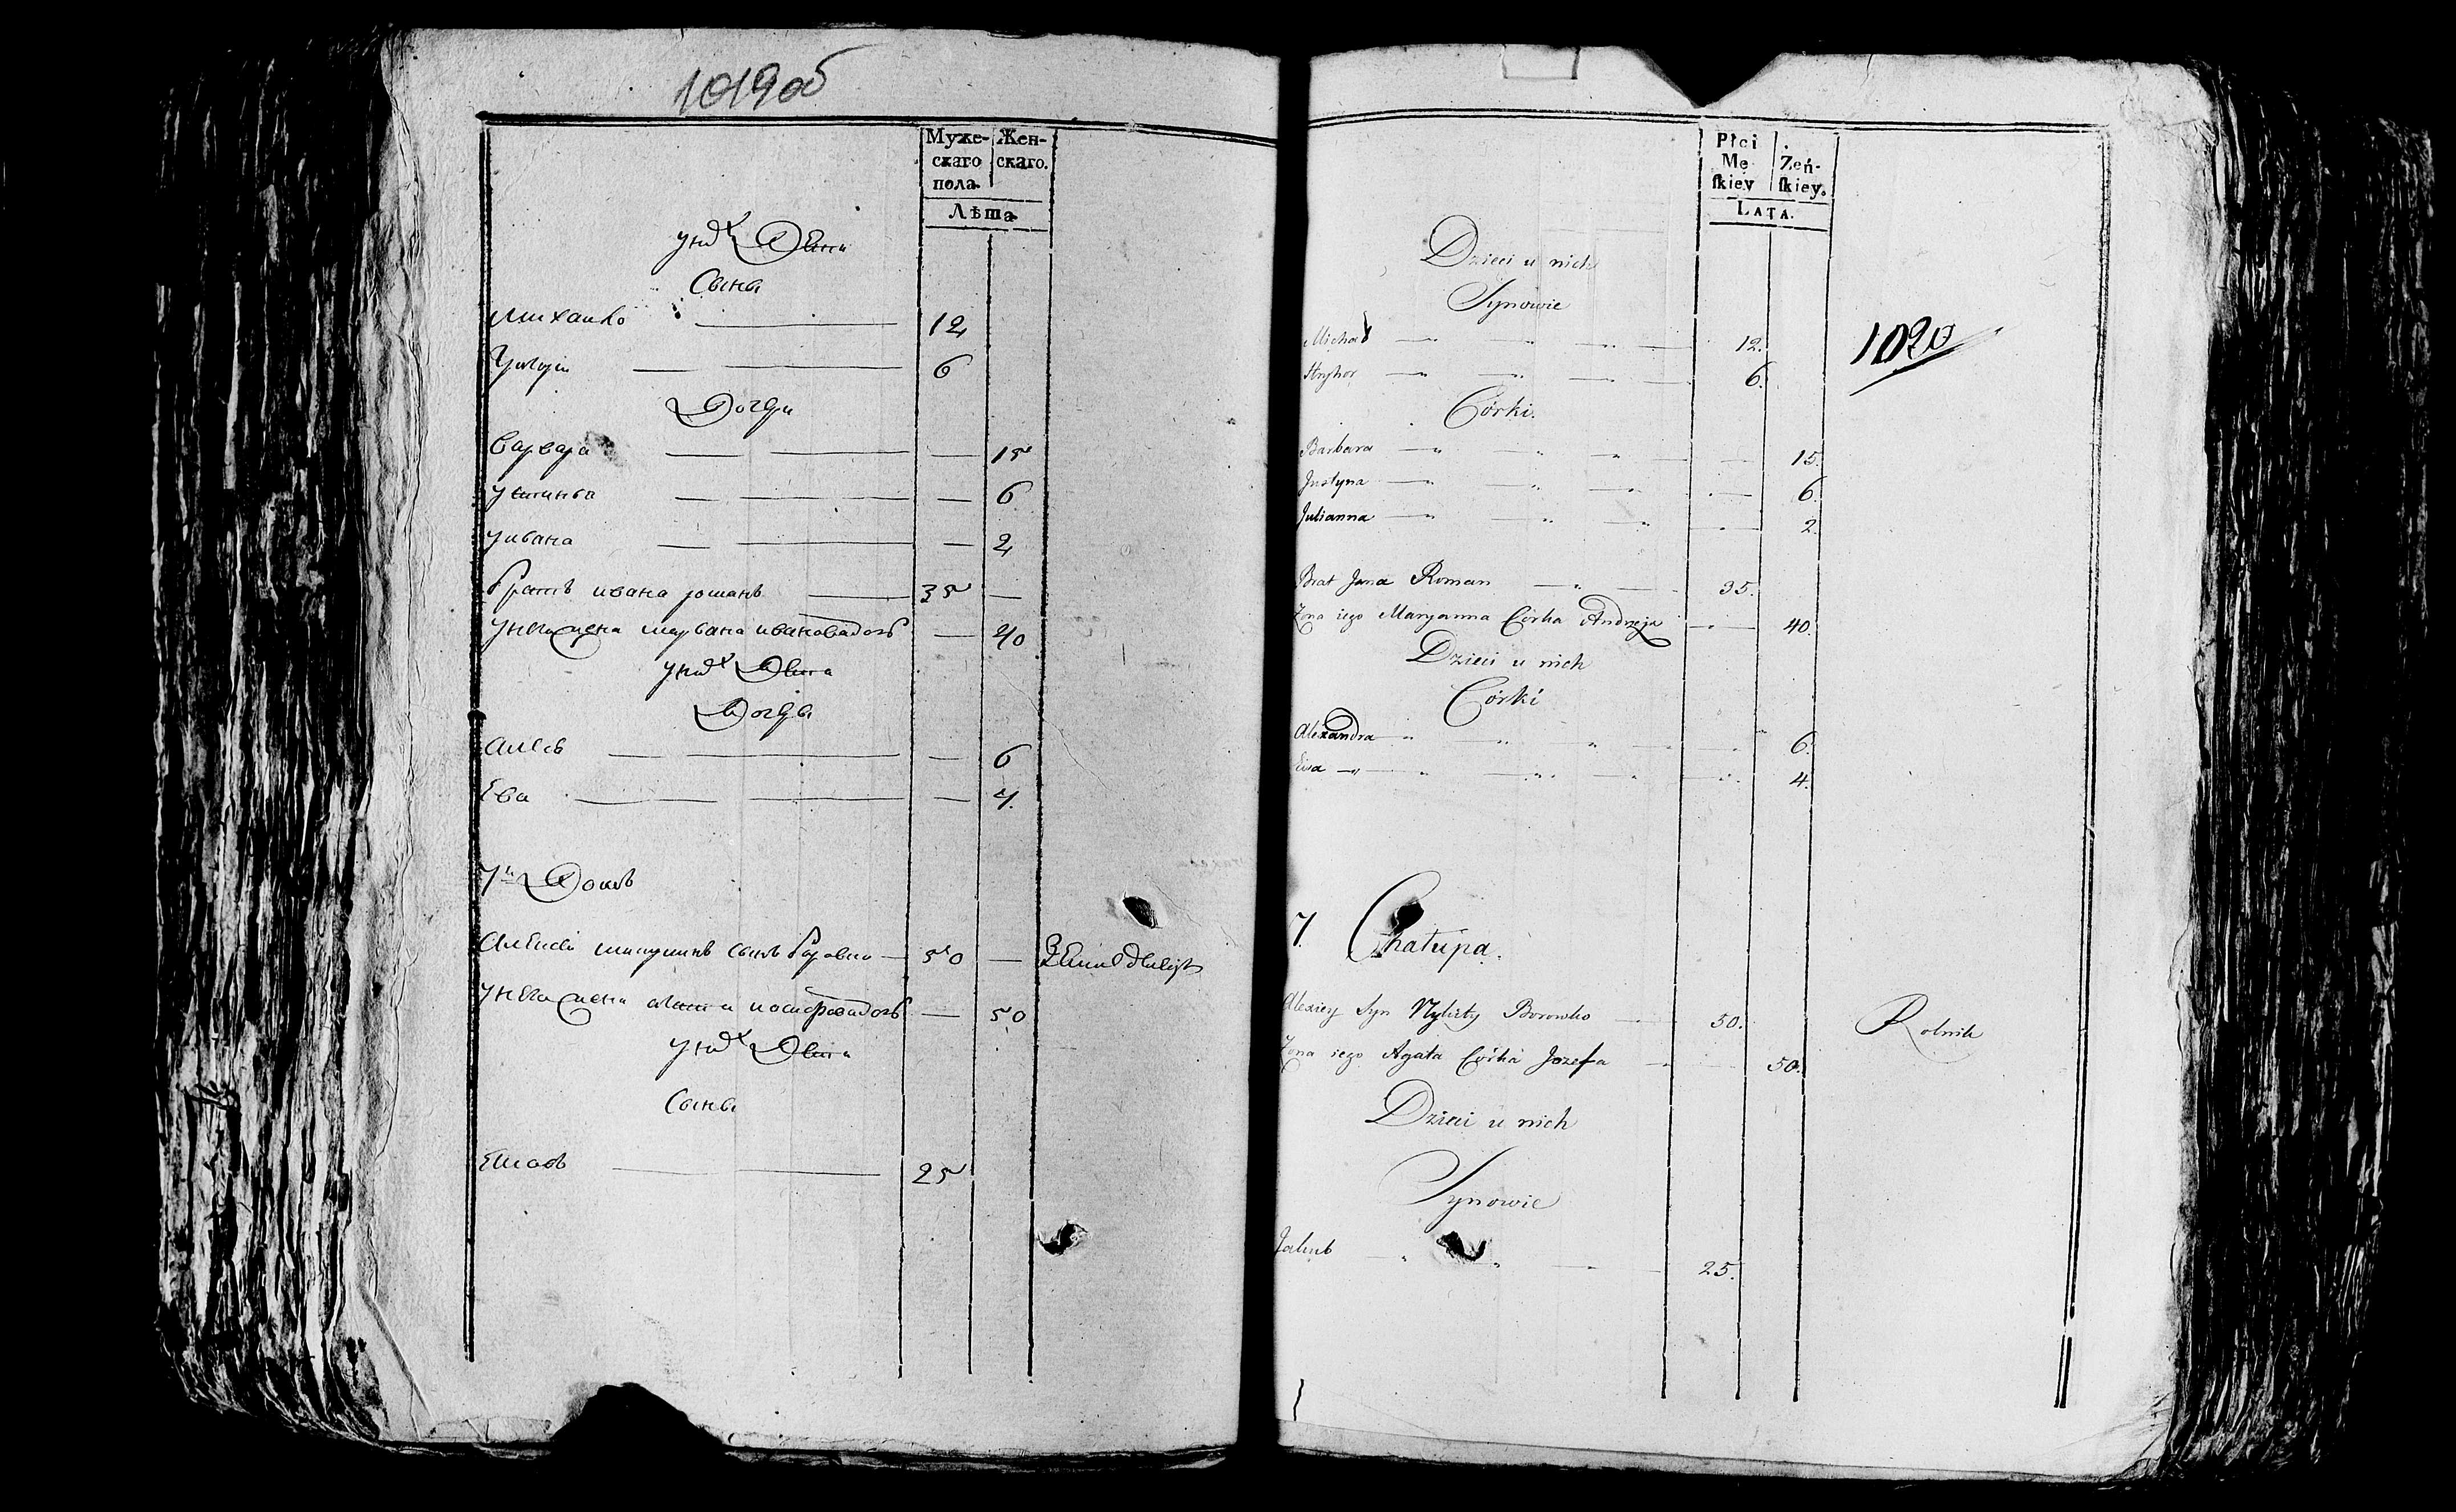 1019об
Муже-
скаго
пола
Жен-
скаго.
Лѣта
у них Дѣти
Сыны
Михайло 12
Григори 6
Дочери
Варвара 15
Устинья 6
Ульяна 2
братъ ивана романъ 35
у него жена марьяна 40
у них Дѣти
Дочери
Алеся 6
Ева 4.
7й Домъ
Алексей сынъ боровко 50 Земледелецъ
у него жена агата иосифова дочь 50
у них Дѣти
Сыны
Яковъ 25
Płci
Mę
ſkiey
Żeń-
ſkiey.
LATA.
Dzieci u nich
Synowie
1020
Michał 12.
Hryhor 6.
Córki.
Barbara 15.
Justyna 6.
Julianna 2.
Brat Jana Roman 35.
Żona iego Maryanna Córka Andrzeja 40.
Dzieci u nich
Córki
Alexandra 6.
Ewa 4.
7. Chałupa.
Alexiey Syn Borowko 50. Rolnik
Żona iego Agata Córka Jozefa 50.
Dzieci u nich
Synowie
Jakub 25.